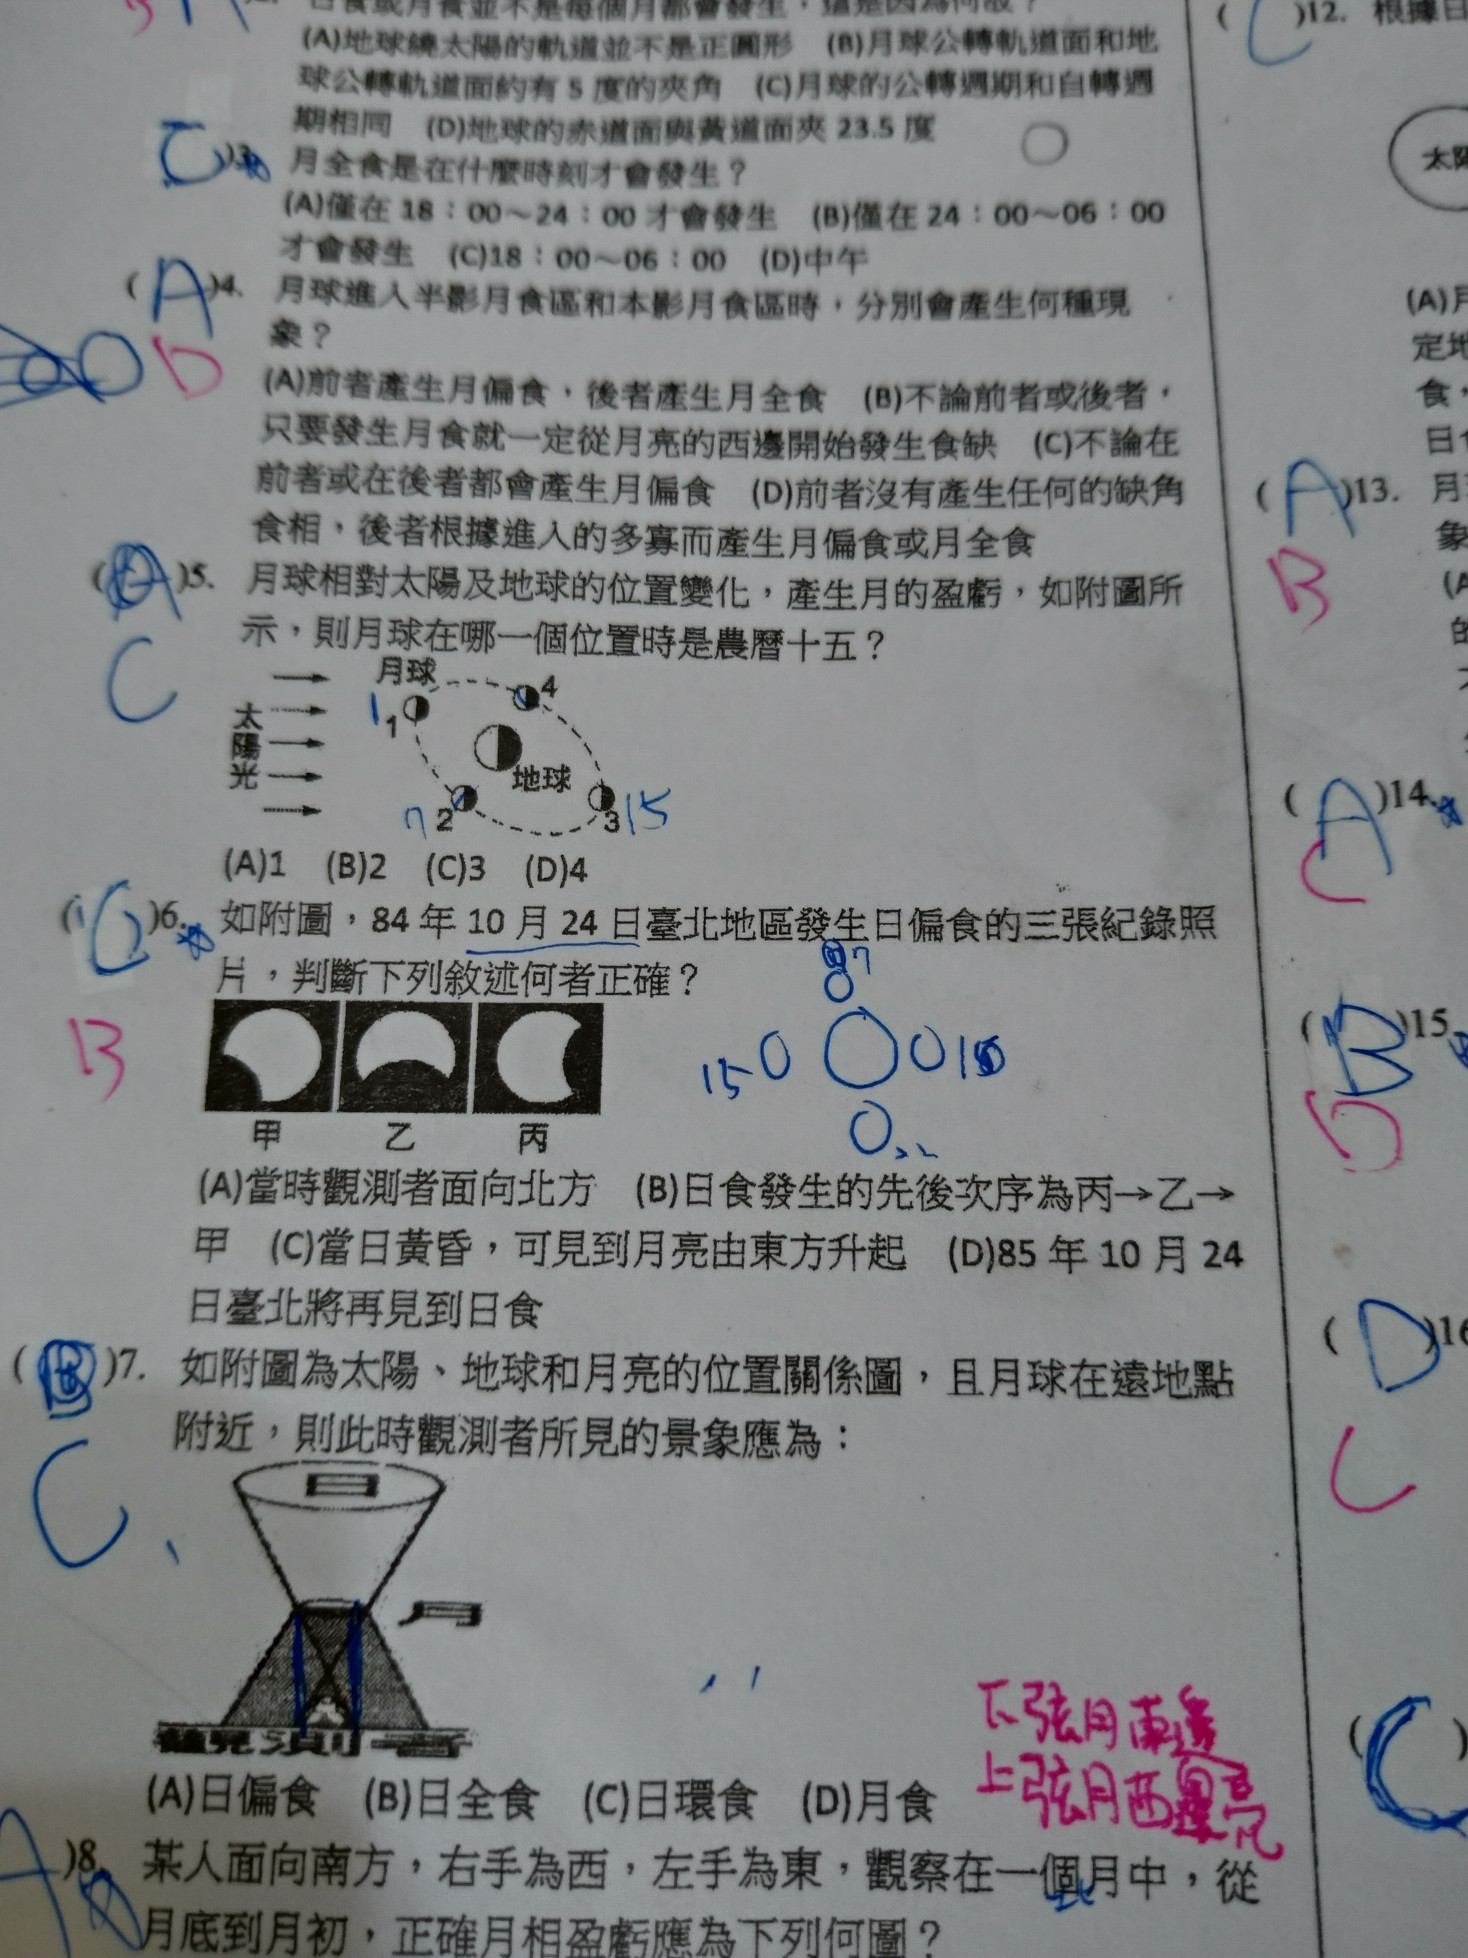 日食或月食並不是每個月都會發生，這是因為何故？
(A)地球繞太陽的軌道並不是正圓形 (B)月球公轉軌道面和地
球公轉軌道面約有 5 度的夾角 (C)月球的公轉週期和自轉週
期相同 (D)地球的赤道面與黃道面夾 23.5 度
C )3. 月全食是在什麼時刻才會發生？
(A)僅在 18：00～24：00 才會發生 (B)僅在 24：00～06：00
才會發生 (C)18：00～06：00 (D)中午
( A )4. 月球進入半影月食區和本影月食區時，分別會產生何種現
象？
D
(A)前者產生月偏食，後者產生月全食 (B)不論前者或後者，
只要發生月食就一定從月亮的西邊開始發生食缺 (C)不論在
前者或在後者都會產生月偏食 (D)前者沒有產生任何的缺角
食相，後者根據進入的多寡而產生月偏食或月全食
( )5. 月球相對太陽及地球的位置變化，產生月的盈虧，如附圖所
示，則月球在哪一個位置時是農曆十五？
C
月球
太陽光
1 1
4
地球
7 2
3 15
(A)1 (B)2 (C)3 (D)4
( )6. 如附圖，84 年 10 月 24 日臺北地區發生日偏食的三張紀錄照
片，判斷下列敘述何者正確？
B
7
15
22
甲 乙 丙
(A)當時觀測者面向北方 (B)日食發生的先後次序為丙→乙→
甲 (C)當日黃昏，可見到月亮由東方升起 (D)85 年 10 月 24
日臺北將再見到日食
( )7. 如附圖為太陽、地球和月亮的位置關係圖，且月球在遠地點
附近，則此時觀測者所見的景象應為：
C
日
月
觀測者
(A)日偏食 (B)日全食 (C)日環食 (D)月食
下弦月東邊
上弦月西邊亮
A )8. 某人面向南方，右手為西，左手為東，觀察在一個月中，從
月底到月初，正確月相盈虧應為下列何圖？
( C )12. 根據日
太陽
(A)月
定地
食，
日
( A )13. 月
象
B
(A
的
( A )14.
C
( B )15.
D
( D )16
C
( C )